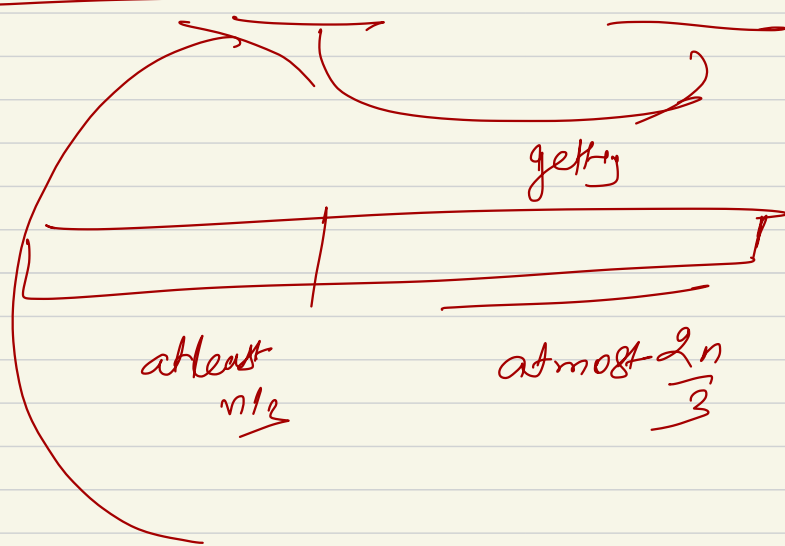 getting
atleast atmost 2n/3
n/2